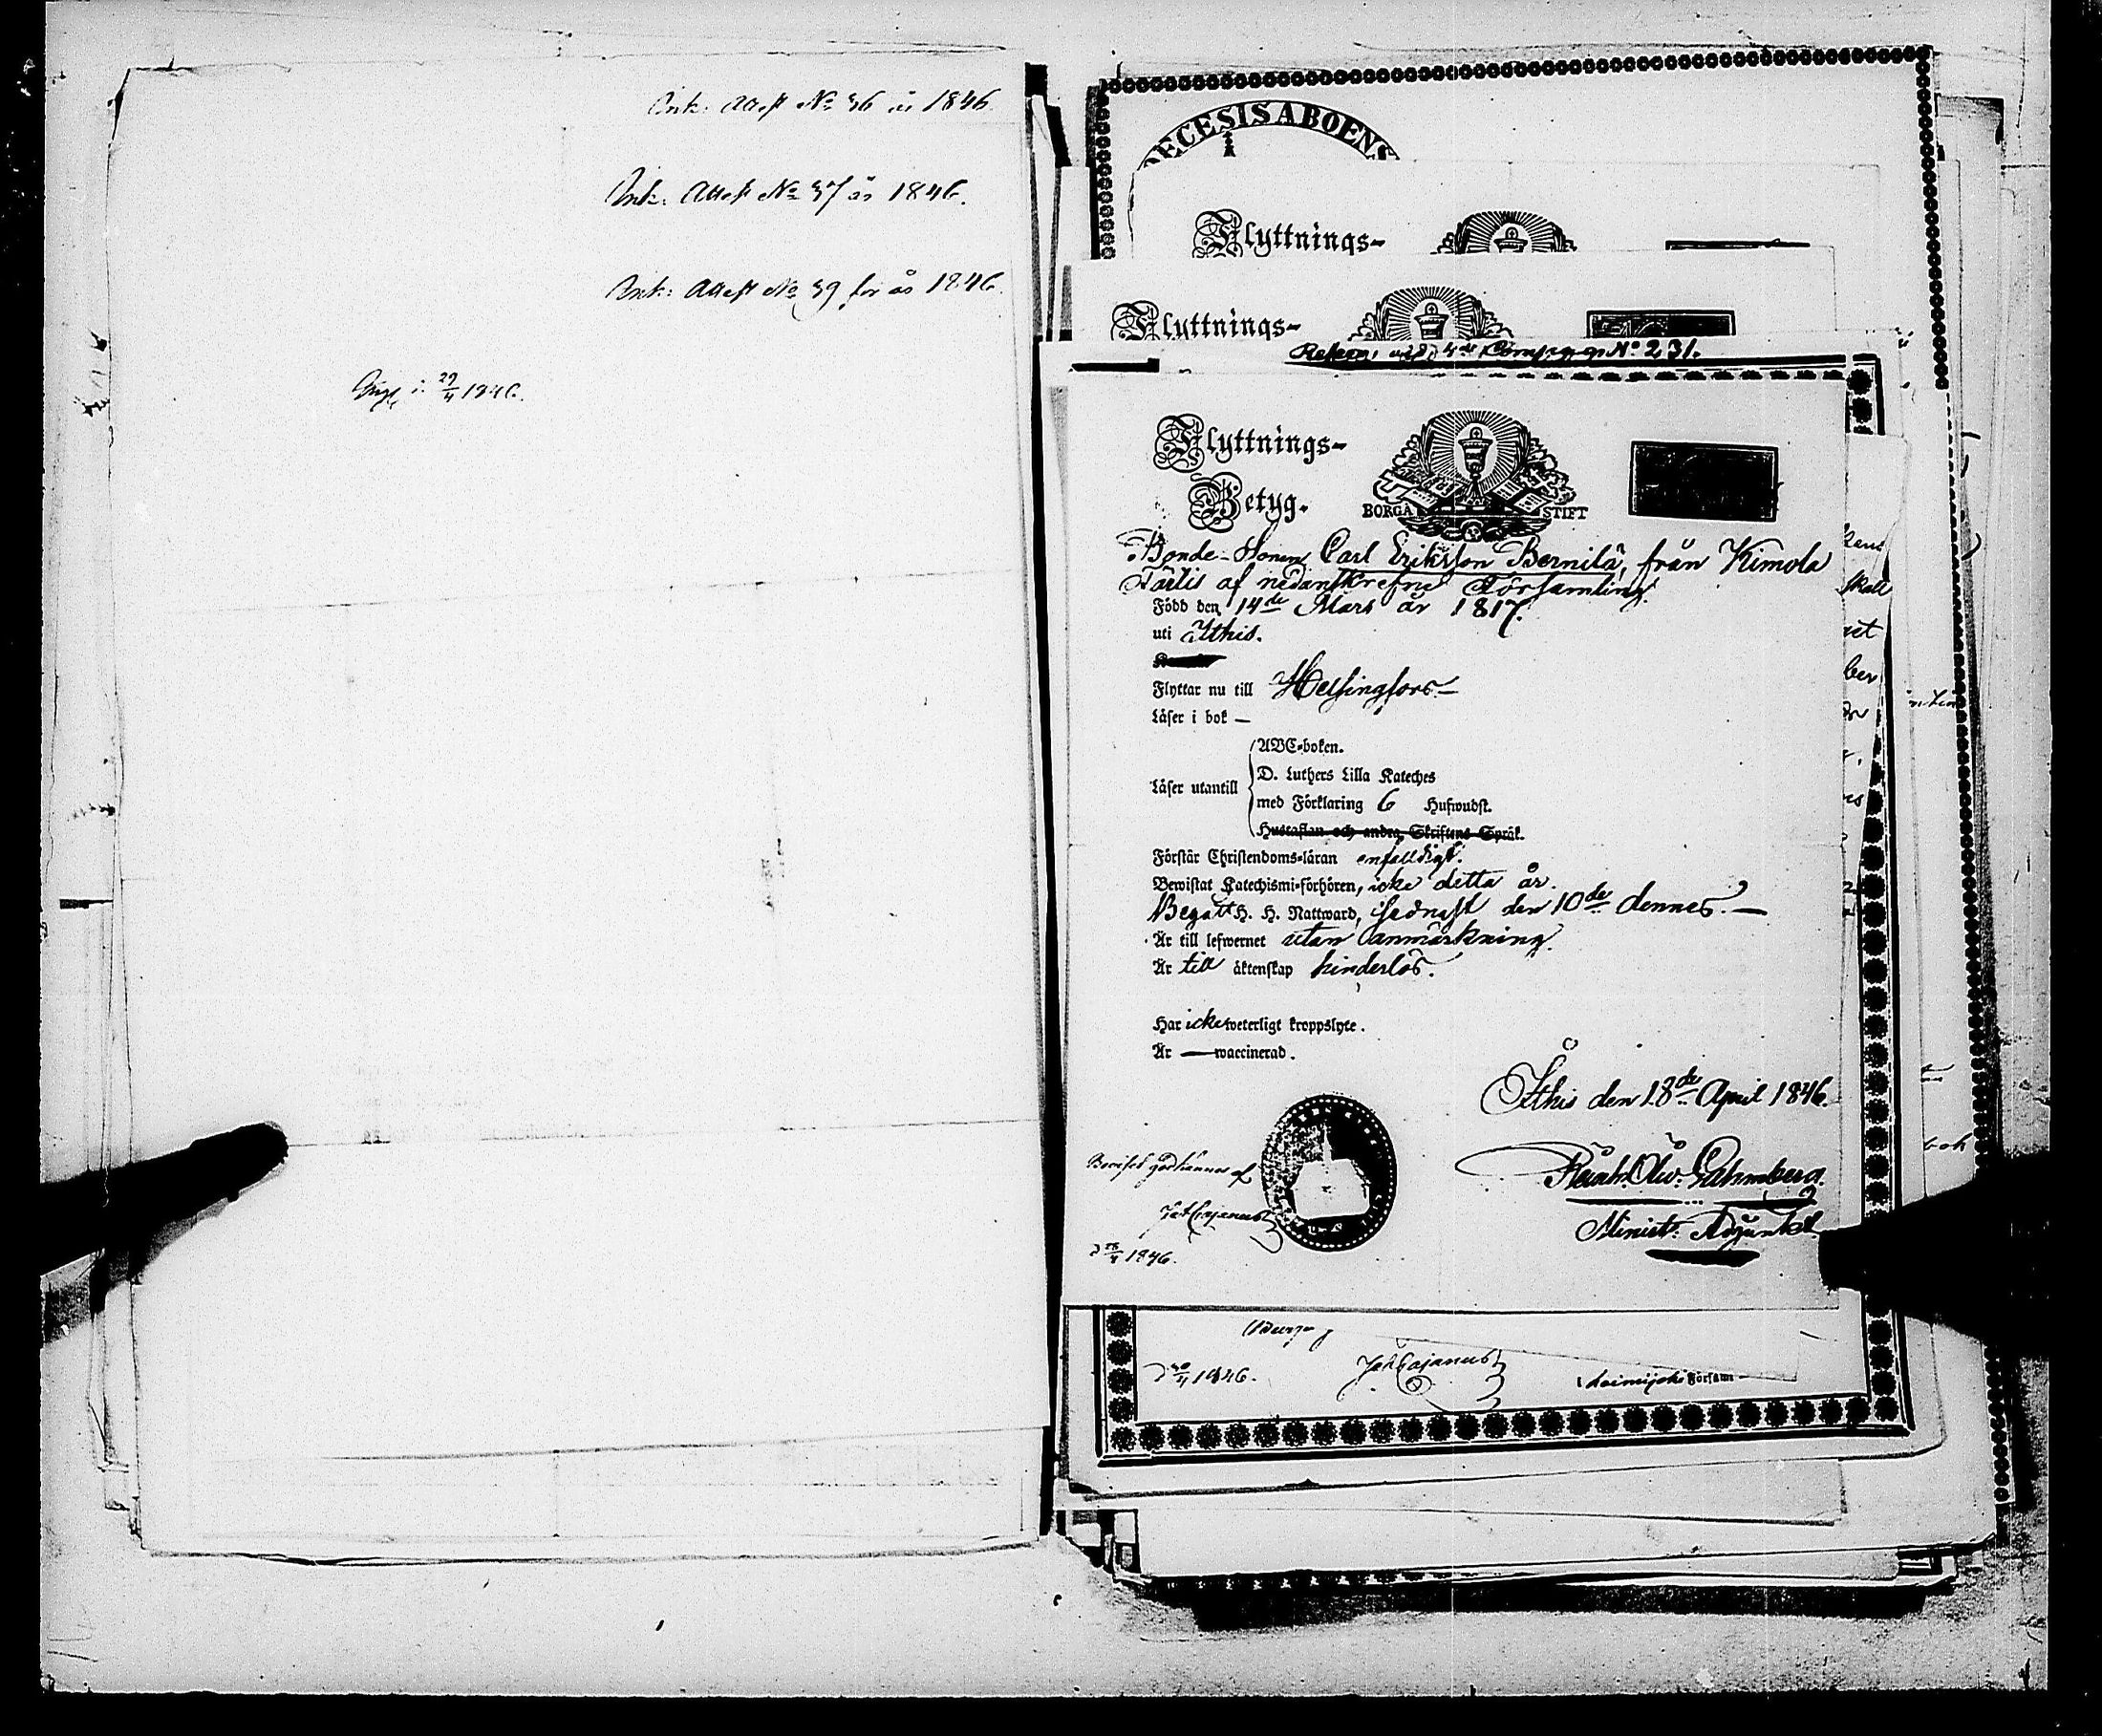 Ink: Attest No 36 år 1846.
Ink: Attest No 37 år 1846.
Ink: Attest No 39 för år 1846.
i 29/4 1846.
DECESIS ABOENS
Flyttnings-
Flyttnings-
No 231.
Flyttnings-
Betyg.
BORGÅ STIFT
Bonde-Sonen Carl Eriksson Bernilä, från Kimola
af nedanskrefne Församling.
Född den 14de Mars år 1817.
uti Ithis.
Flyttar nu till Helsingfors.—
Läser i bok —
ABC-boken.
Läser utantill
D. Luthers Lilla Kateches
med Förklaring 6 Hufwudst.
Hustaflan och andra Skriftens Språk.
Förstår Christendoms-läran enfalldigt.
Bewistat Katechismi-förhören, icke detta år.
Begått H. H. Nattward, sednast den 10de dennes.—
Är till lefwernet utan anmärkning.
Är till äktenskap hinderlös.
Har icke weterligt kroppslyte.
Är — waccinerad.
Ithis den 18de April 1846.
Beviset godkännes af
Jak Cajanus
1846.
Minist: Adjunkt.
1846.
Jak Cajanus
Loimijoki Församl